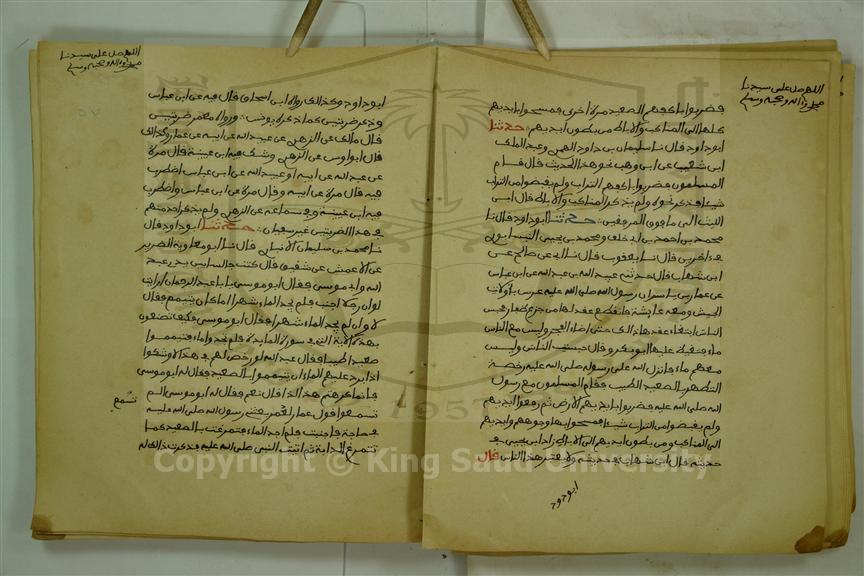 اللهم صل على سيدنا
محمد واله وصحبه وسلم
فضربوا باكفهم الصعيد مرة اخرى فمسحوا بايديهم
كلها الى المناكب والاباط من بطون ايديهم حدثنا
ابو داود قال نا سليمان بن داود المهري وعبد الملك
ابن شعيب عن ابن وهب نحو هذا الحديث قال قام
المسلمون فضربوا باكفهم التراب ولم يقبضوا من التراب
شيئا فذكر نحوه ولم يذكر المناكب والاباط قال ابن
الليث الى ما فوق المرفقين حدثنا ابو داود قال نا
محمد بن احمد بن ابي خلف ومحمد بن يحيى النيسابوري
في اخرين قال نا يعقوب قال نا ابي عن صالح عن
ابن شهاب قال حدثني عبيد الله بن عبد الله عن ابن عباس
عن عمار بن ياسر ان رسول الله صلى الله عليه عرس باولات
الجيش ومعه عايشة فانقطع عقد لها من جزع ظفار فحبس
الناس ابتغاء عقدها ذلك حتى اضاء الفجر وليس مع الناس
ماء فتغيظ عليها ابو بكر وقال حبست الناس وليس
معهم ماء فانزل الله على رسوله صلى الله عليه رخصة
التطهر بالصعيد الطيب فقام المسلمون مع رسول
الله صلى الله عليه فضربوا بايديهم الارض ثم رفعوا ايديهم
ولم يقبضوا من التراب شيئا فمسحوا بها وجوههم وايديهم
الى المناكب ومن بطون ايديهم الى الاباط زاد ابن يحيى في
حديثه قال ابن شهاب في حديثه ولا يعتبر هذا الناس قال
ابو داود
اللهم صل على سيدنا
محمد واله وصحبه وسلم
ابو داود وكذلك رواه ابن اسحاق قال فيه عن ابن عباس
وذكر ضربتين كما ذكره يونس ورواه معمر ضربتين
قال مالك عن الزهري عن عبيد الله عن ابيه عن عمار وكذلك
قال ابو اويس عن الزهري وشك فيه ابن عيينة قال مرة
عن عبيد الله عن ابيه او عبيد الله عن ابن عباس اضطرب
فيه قال مرة عن ابيه وقال مرة عن ابن عباس واضطرب
فيه ابن عيينة وفي سماعه عن الزهري ولم يذكر احد منهم
في هذا الضربتين غير من سميت حدثنا ابو داود قال
نا محمد بن سليمان الانباري قال نا ابو معاوية الضرير
عن الاعمش عن شقيق قال كنت جالسا بين يدي عبد
الله وابي موسى فقال ابو موسى يا ابا عبد الرحمان ارايت
لو ان رجلا اجنب فلم يجد الماء شهرا اما كان يتيمم فقال
لا وان لم يجد الماء شهرا فقال ابو موسى فكيف تصنعون
بهذه الاية التي في سورة المايدة فلم تجدوا ماء فتيمموا
صعيدا طيبا فقال عبد الله لو رخص لهم في هذا لاوشكوا
اذا برد عليهم الماء ان يتيمموا بالصعيد فقال له ابو موسى
فانما كرهتم هذا لذا قال نعم فقال له ابو موسى الم
تسمع
تسمعوا قول عمار لعمر بعثني رسول الله صلى الله عليه
في حاجة فاجنبت فلم اجد الماء فتمرغت بالصعيد كما
تتمرغ الدابة ثم اتيت النبي صلى الله عليه فذكرت ذلك له
1957
Copyright © King Saud University